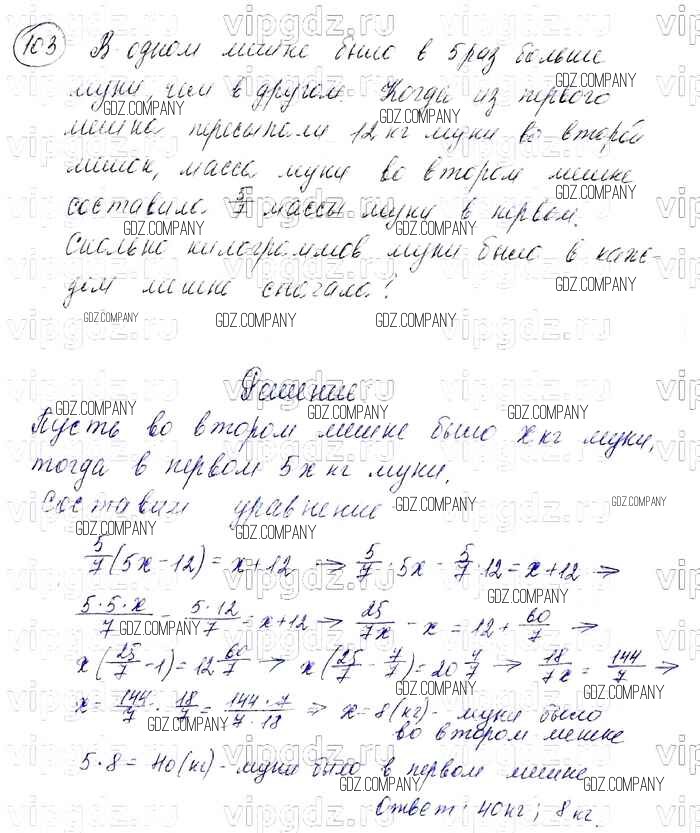 103 В одном мешке было в 5 раз больше
муки, чем в другом. Когда из первого
мешка пересыпали 12 кг муки во второй
мешок, масса муки во втором мешке
составила 5/7 массы муки в первом.
Сколько килограммов муки было в каж-
дом мешке сначала?
Решение
Пусть во втором мешке было x кг муки,
тогда в первом 5x кг муки.
Составим уравнение
5/7 (5x - 12) = x + 12 → 5/7 · 5x - 5/7 · 12 = x + 12 →
5·5·x/7 - 5·12/7 = x + 12 → 25/7x - x = 12 + 60/7 →
x (25/7 - 1) = 12 60/7 → x (25/7 - 7/7) = 20 4/7 → 18/7x = 144/7 →
x = 144/7 : 18/7 = 144·7/7·18 → x = 8 (кг) - муки было
во втором мешке
5·8 = 40 (кг) - муки было в первом мешке
Ответ: 40 кг; 8 кг.
vipgdz.ru
GDZ.COMPANY